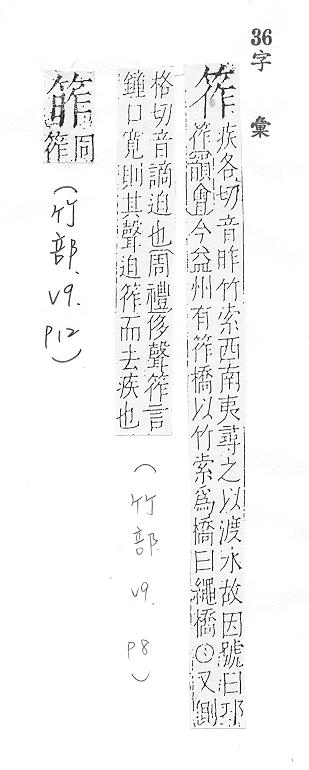 36字彙
筰
疾各切音昨竹索西南夷尋之以渡水故因號曰邛
筰韻會今益州有筰橋以竹索爲橋曰繩橋〇又側
格切音謫迫也周禮侈聲筰言
鍾口寬則其聲迫筰而去疾也
(竹部 v9. P8)
筰同
(竹部. v9. P12)